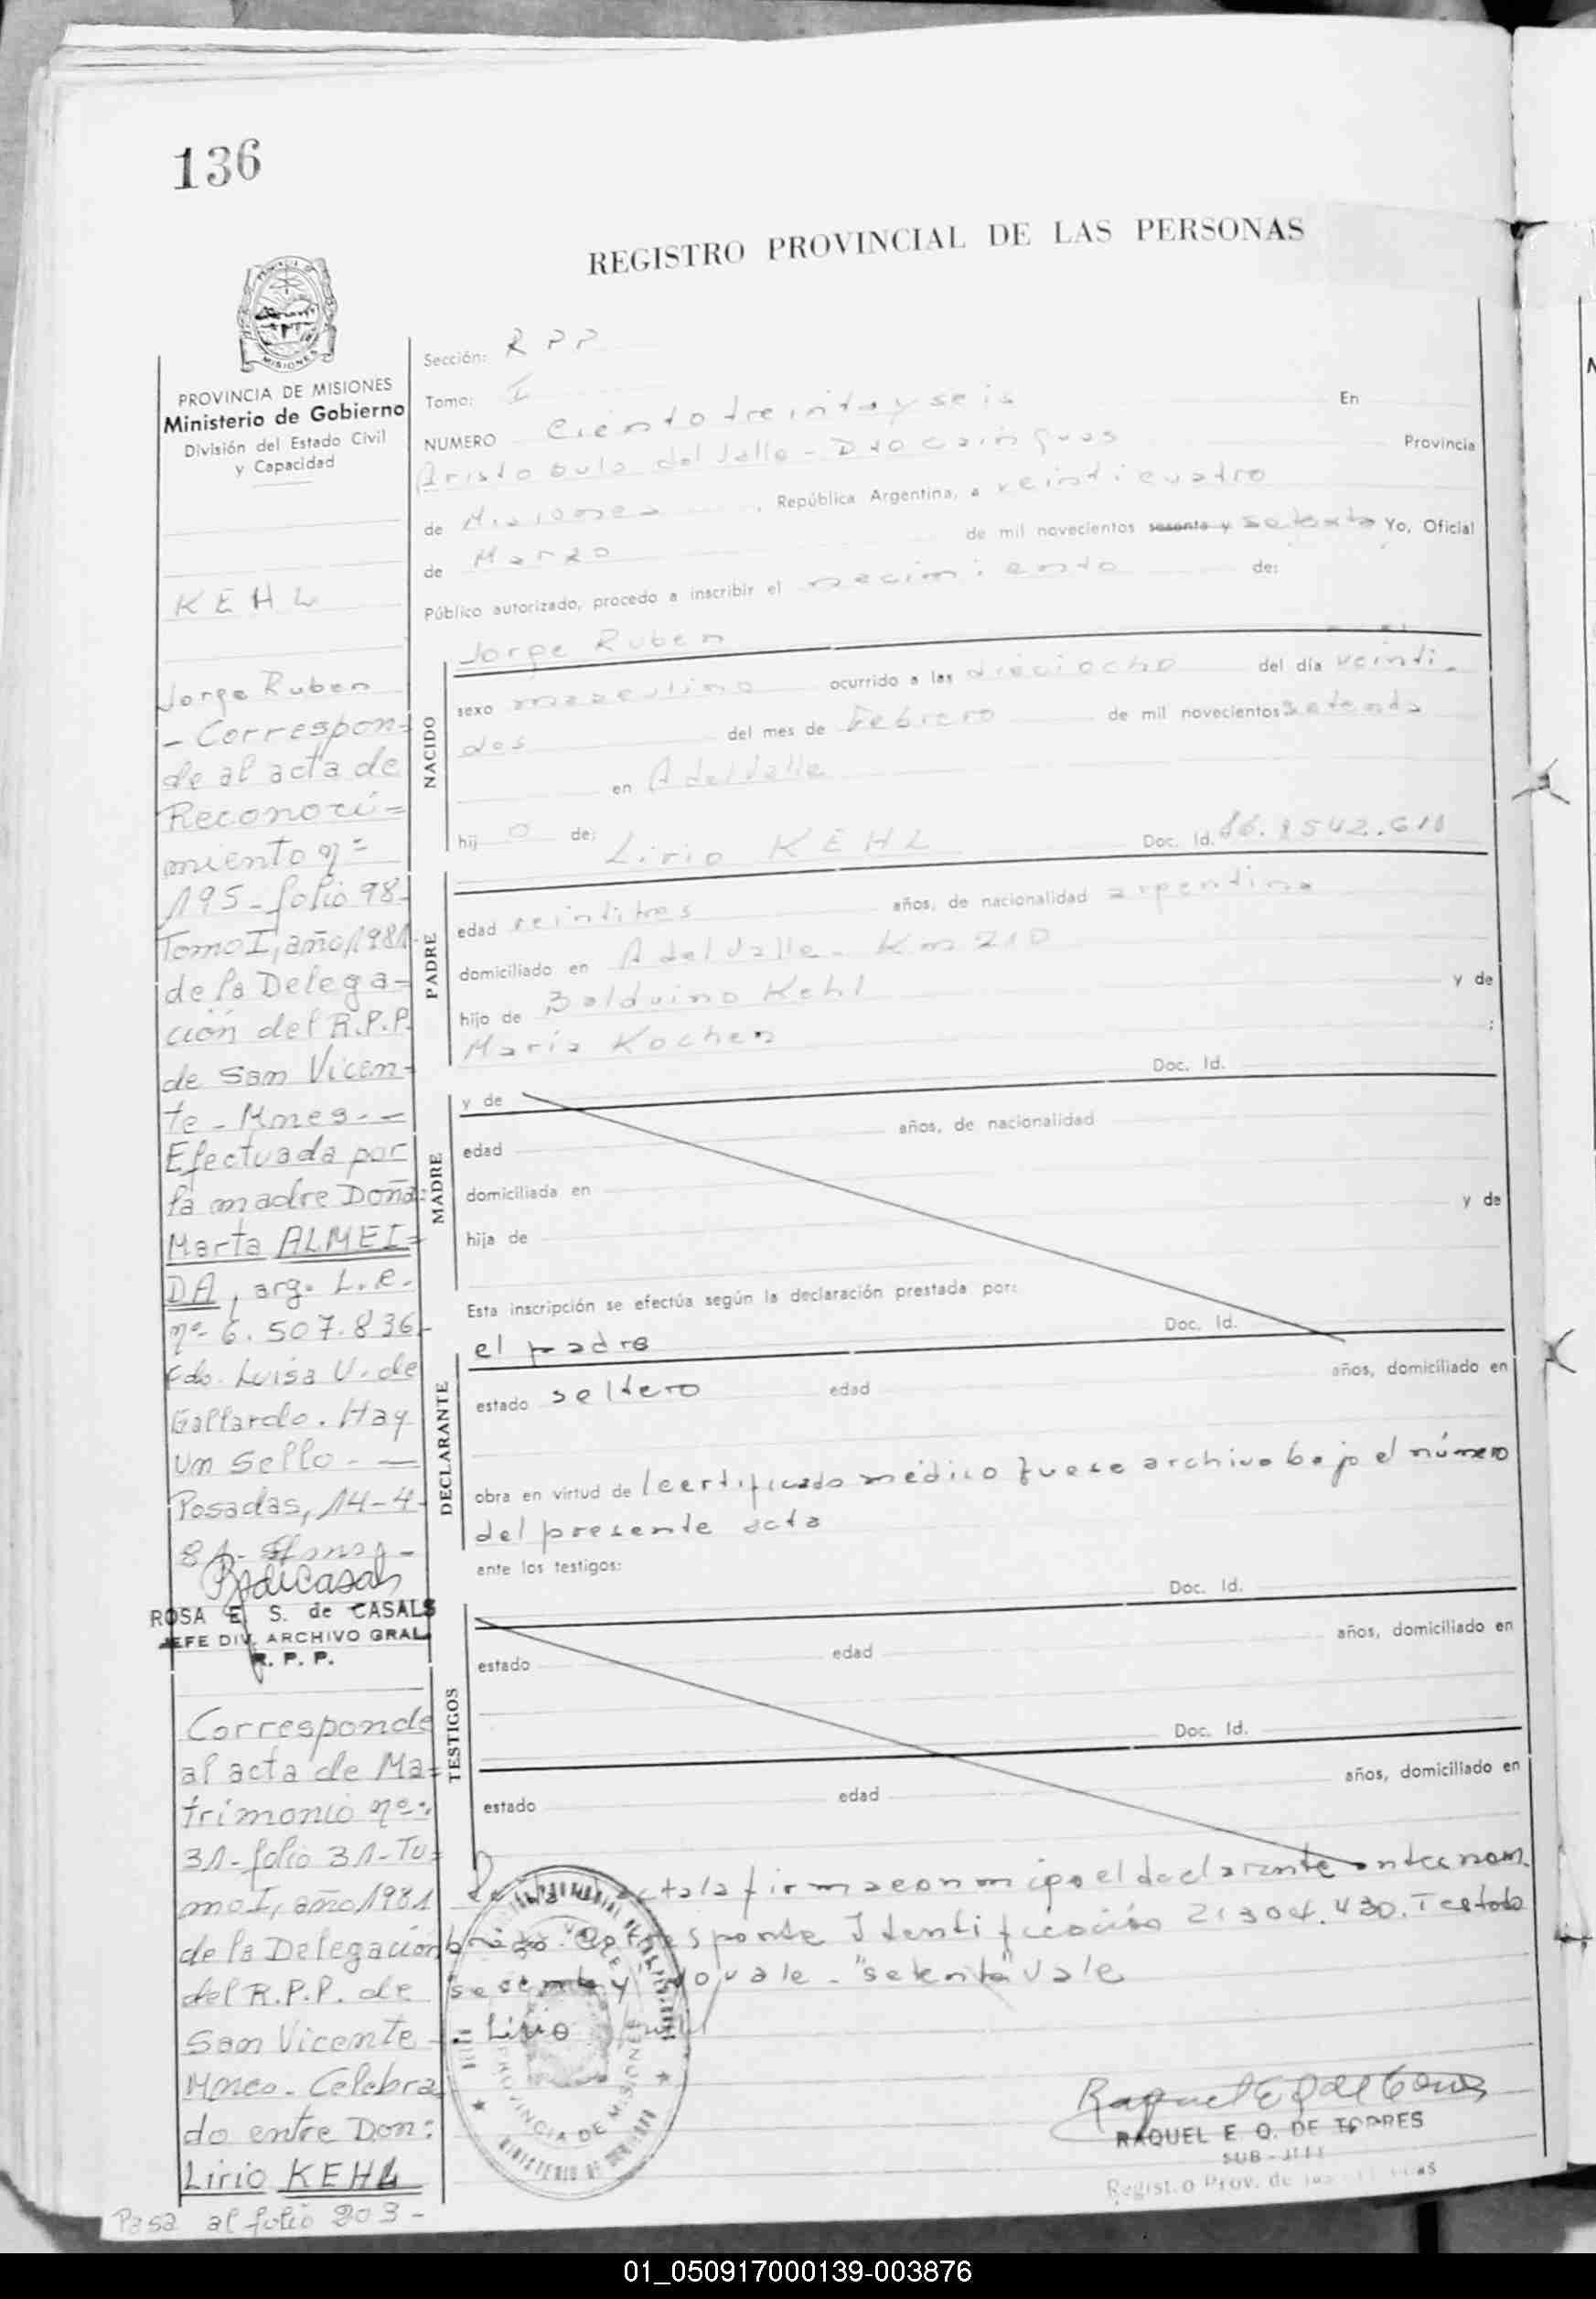 136
REGISTRO PROVINCIAL DE LAS PERSONAS
PROVINCIA DE MISIONES
Ministerio de Gobierno
División del Estado Civil
y Capacidad
KEHL
Jorge Ruben
- Correspon=
de al acta de
Reconoci=
miento nº
195 - folio 98-
Tomo I, año 1981-
de la Delega=
ción del R.P.P.
de San Vicen=
te - Mnes. -
Efectuada por
la madre Doña:
Marta ALMEI=
DA, arg. L.C.
nº 6.507.836-
Fdo. Luisa V. de
Gallardo. Hay
un sello. -
Posadas, 14-4-
81-
ROSA E. S. de CASALS
JEFE DIV. ARCHIVO GRAL.
R. P. P.
Corresponde
al acta de Ma=
trimonio nº:
31- folio 31- To=
mo I, año 1981
de la Delegación
del R.P.P. de
San Vicente -
Mnes. - Celebra
do entre Don:
Lirio KEHL
Pasa al folio 203 -
Sección: R P P
Tomo: I
NUMERO Ciento treinta y seis En
Aristobulo del Valle - Provincia
de Misiones, República Argentina, a veinticuatro
de Marzo de mil novecientos sesenta y setenta Yo, Oficial
Público autorizado, procedo a inscribir el nacimiento de:
Jorge Ruben
NACIDO
sexo masculino ocurrido a las dieciocho del día veinti-
dos del mes de Febrero de mil novecientos setenta
en A del Valle
hij o de: Lirio KEHL Doc. Id.
PADRE
edad veintitres años, de nacionalidad argentina
domiciliado en A del Valle - Km 210
hijo de Balduino Kehl y de
Maria Kochen ;
MADRE
y de Doc. Id.
edad años, de nacionalidad
domiciliada en
hija de y de
Esta inscripción se efectúa según la declaración prestada por:
el padre Doc. Id.
DECLARANTE
estado soltero edad años, domiciliado en
obra en virtud de l certificado médico que se archiva bajo el número
del presente acta
ante los testigos:
Doc. Id.
TESTIGOS
estado edad años, domiciliado en
Doc. Id.
estado edad años, domiciliado en
acta la firma conmigo el declarante antes nom-
brado. Identificación 21304.430. Testado
sesenta y No vale - "setenta" Vale
Lirio
PROVINCIA DE MISIONES
RAQUEL E. O. DE TORRES
SUB-JEFE
Regist.o Prov. de las
01_050917000139-003876